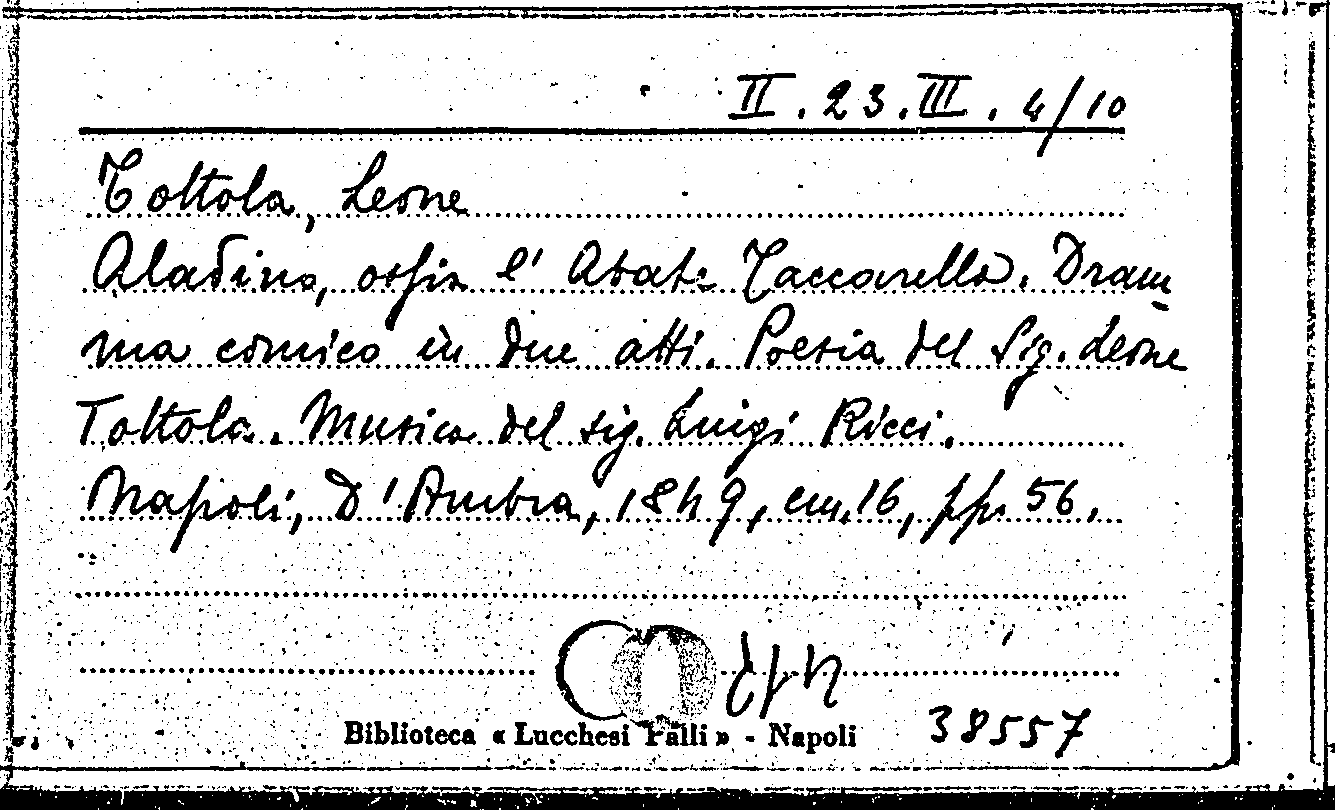 II. 23. III. 4/10
Tottola, Leone
Aladino, ossia l' Abate Taccarella. Dram-
ma comico in due atti. Poesia del Sig. Leone
Tottola. Musica del sig. Luigi Ricci.
Napoli, D'Ambra, 1849, cm. 16, pp. 56.
Biblioteca « Lucchesi Palli » - Napoli 38557